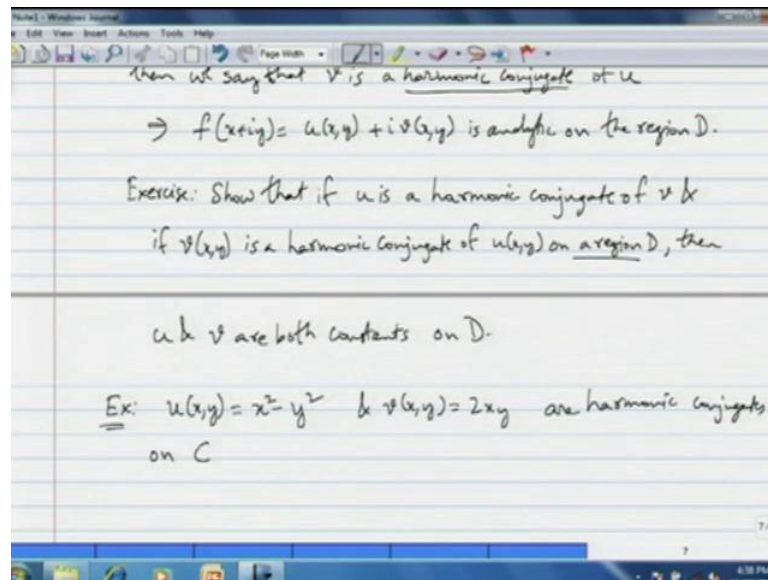 Note1 - Windows Journal
Edit View Insert Actions Tools Help
Page Width
then we say that v is a harmonic conjugate of u
⇒ f(x+iy) = u(x,y) + i v(x,y) is analytic on the region D.
Exercise: Show that if u is a harmonic conjugate of v &
if v(x,y) is a harmonic conjugate of u(x,y) on a region D, then
u & v are both constants on D.
Ex: u(x,y) = x² - y² & v(x,y) = 2xy are harmonic conjugates
on C
7